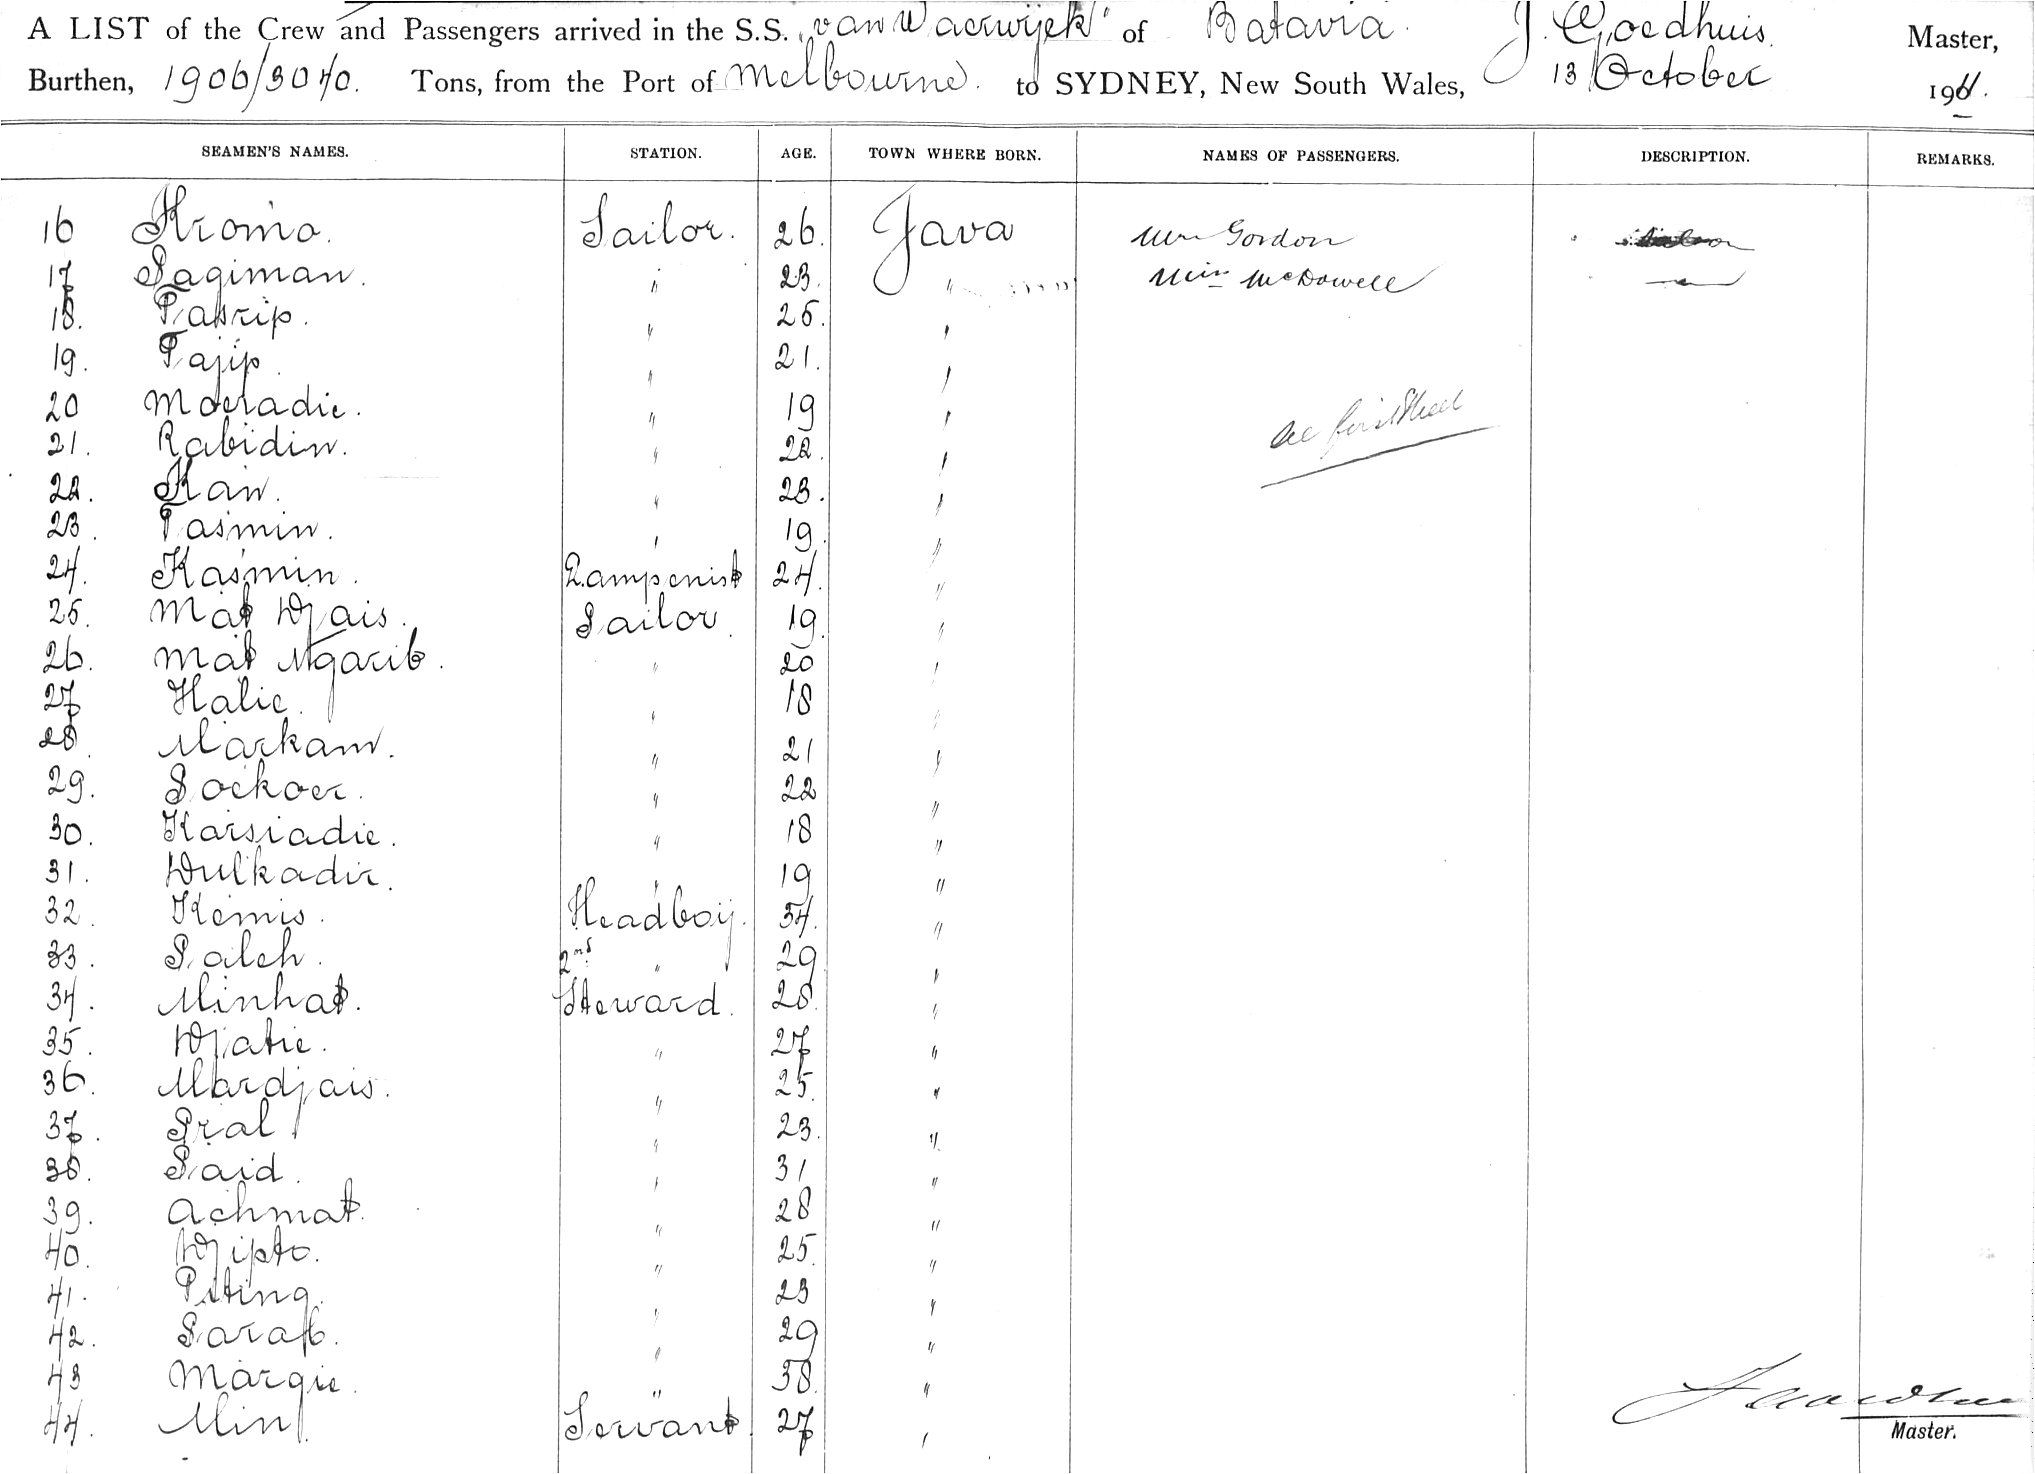 A LIST of the Crew and Passengers arrived in the S.S. „van Waerwijck" of Batavia. J. Goedhuis. Master,
Burthen, 1906/3040. Tons, from the Port of Melbourne. to SYDNEY, New South Wales, 13 October 1911.
SEAMEN'S NAMES. STATION. AGE. TOWN WHERE BORN. NAMES OF PASSENGERS. DESCRIPTION. REMARKS.
16 Kromo. Sailor. 26. Java Mrs Gordon
17 Sagiman. " 23. " Miss McDowell
18. Tasrip. " 25. "
19. Tajip. " 21. "
20 Moeradie. " 19 "
see first sheet
21. Rabidin. " 22. "
22. Kan. " 23. "
23. Tasmin. " 19. "
24. Kasmin. Lampenist 24. "
25. Mat Djais. Sailor. 19. "
26. Mat Ngarib. " 20 "
27 Halie. " 18 "
28. Markam. " 21 "
29. Soekoer. " 22 "
30. Karsiadie. " 18 "
31. Dulkadir. " 19 "
32. Kemis. Headboij. 34. "
33. Saleh. 2nd " 29 "
34. Minhat. Steward. 28. "
35. Djatie. " 27 "
36. Mardjais. " 25. "
37. Sral " 23. "
38. Said. " 31 "
39. Achmat. " 28 "
40. Djipto. " 25. "
41. Piting. " 23 "
42. Sarap. " 29 "
43 Margie. " 38. "
44. Min. Servant. 27 "
Master.